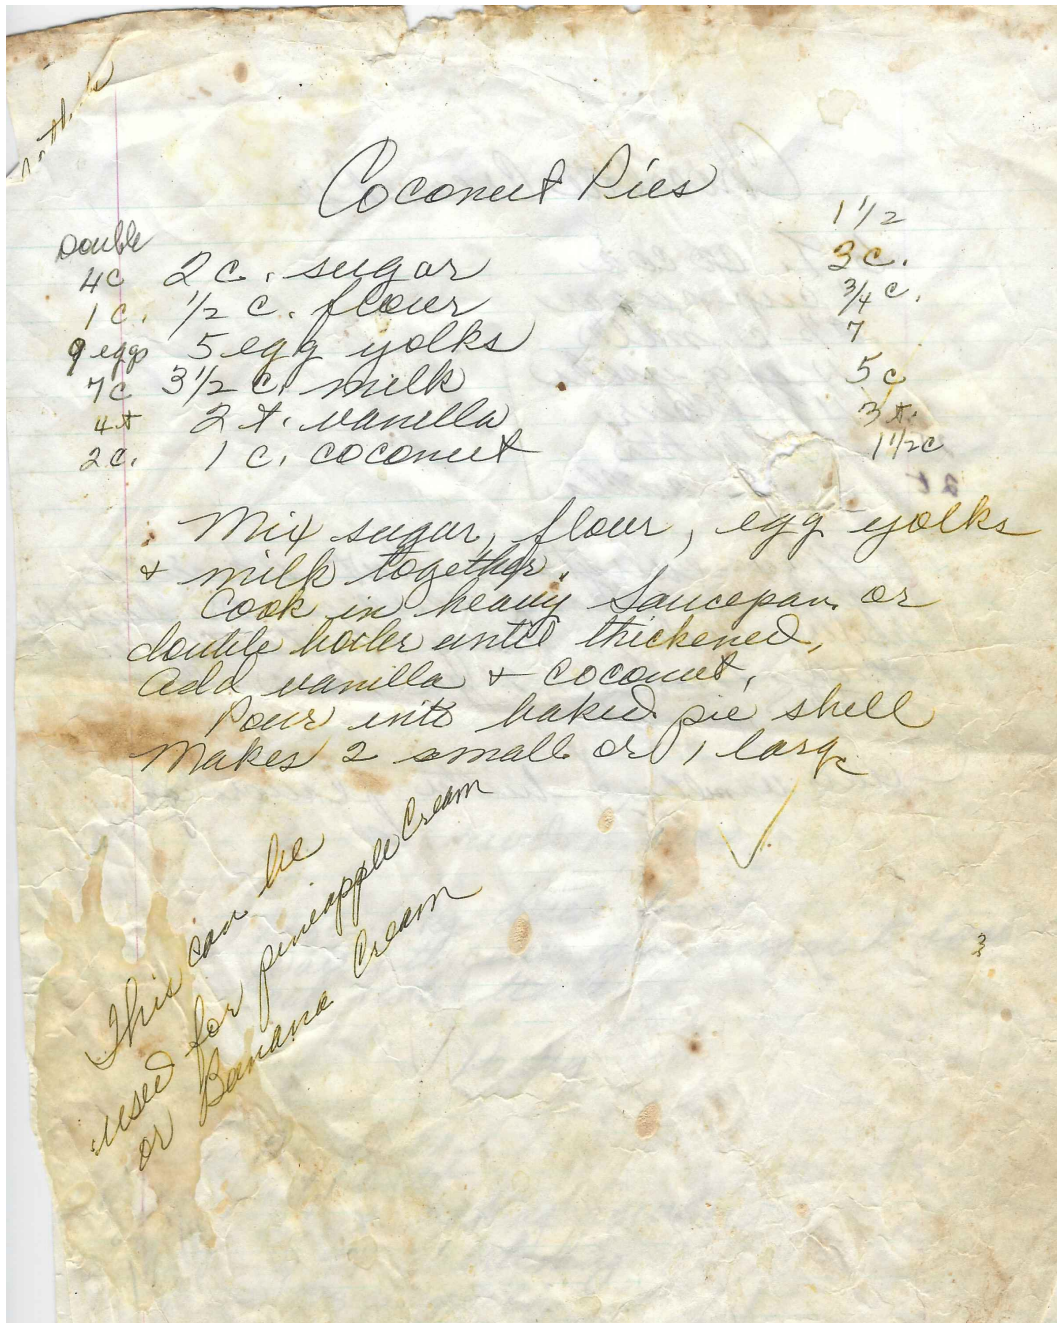 Coconut Pies
Double 1 1/2
4c 2 c. sugar 3 c.
1 c. 1/2 c. flour 3/4 c.
9 eggs 5 egg yolks 7
7c 3 1/2 c. milk 5 c
4t 2 t. vanilla 3 t.
2c. 1 c. coconut 1 1/2c
Mix sugar, flour, egg yolks
+ milk together.
Cook in heavy Saucepan or
double boiler until thickened,
add vanilla + coconut.
Pour into baked pie shell
Makes 2 small or 1 large
This can be
used for pineapple Cream
or Banana Cream